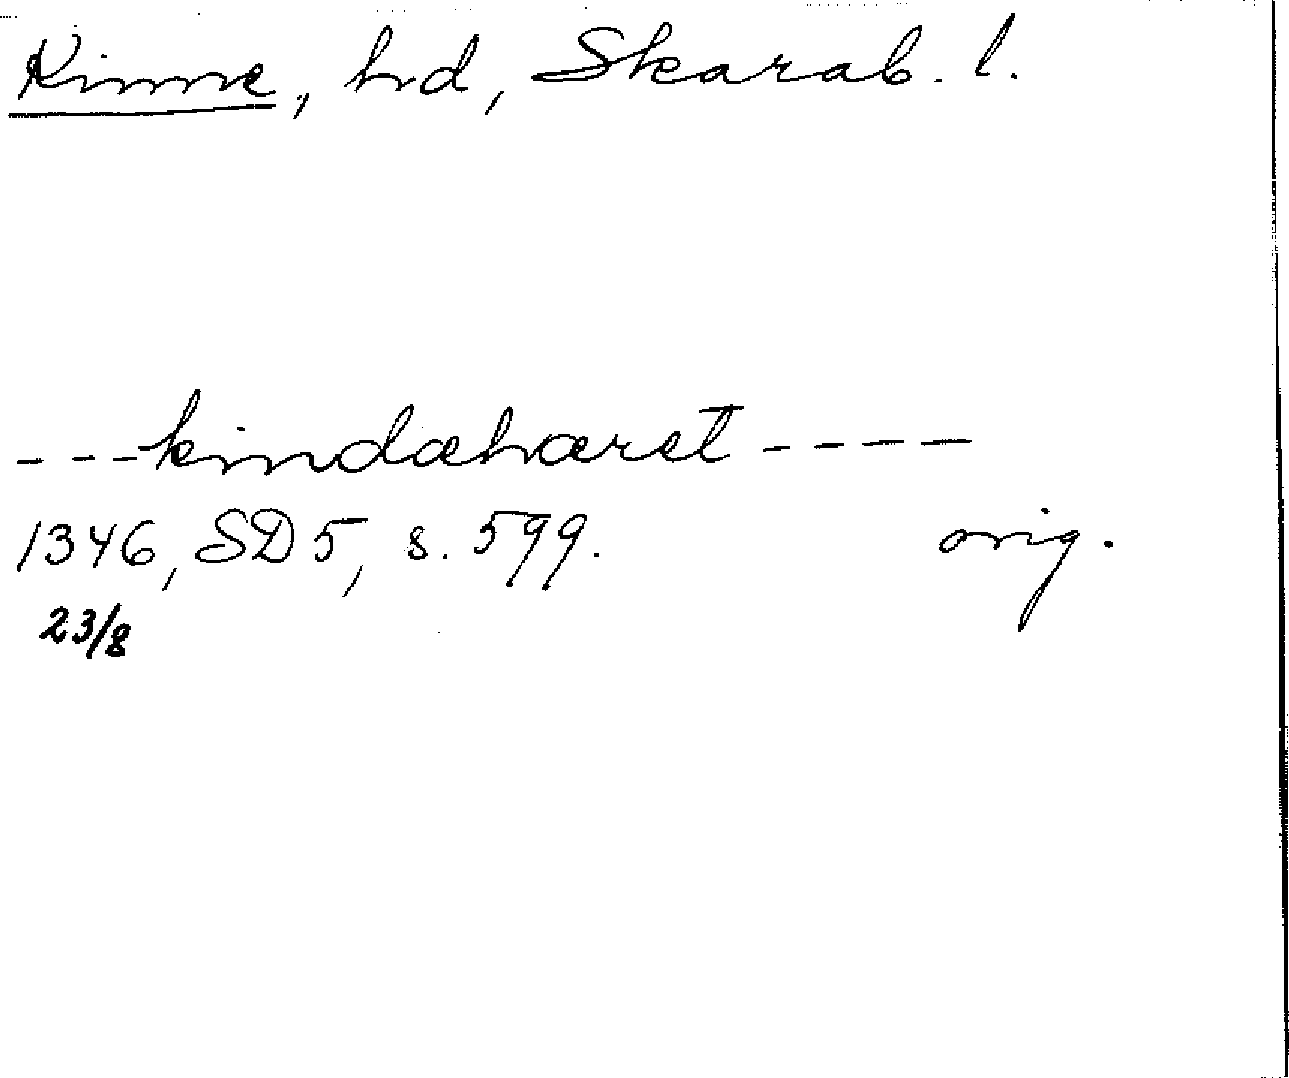 Kinne, hd, Skarab. l.
---kindæhæret----
1346, SD 5, s. 599. orig.
23/8